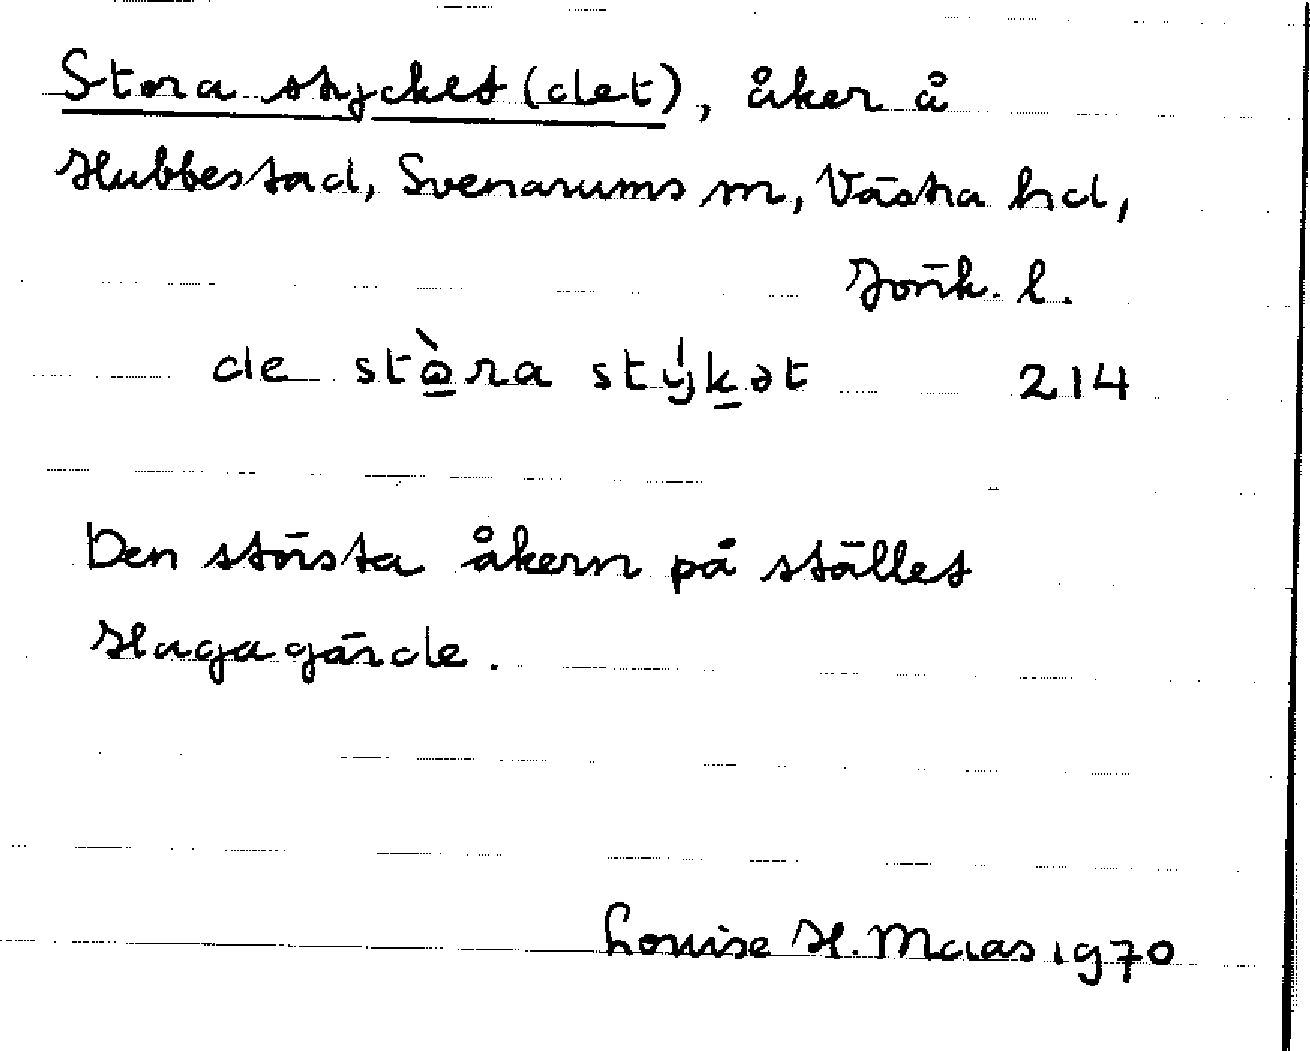 Stora stycket (det), åker å
Hubbestad, Svenarums sn, Västra hd,
Jönk. l.
de stò̱ra stýḵət 214
Den största åkern på stället
Hagagärde.
Louise H. Maas 1970